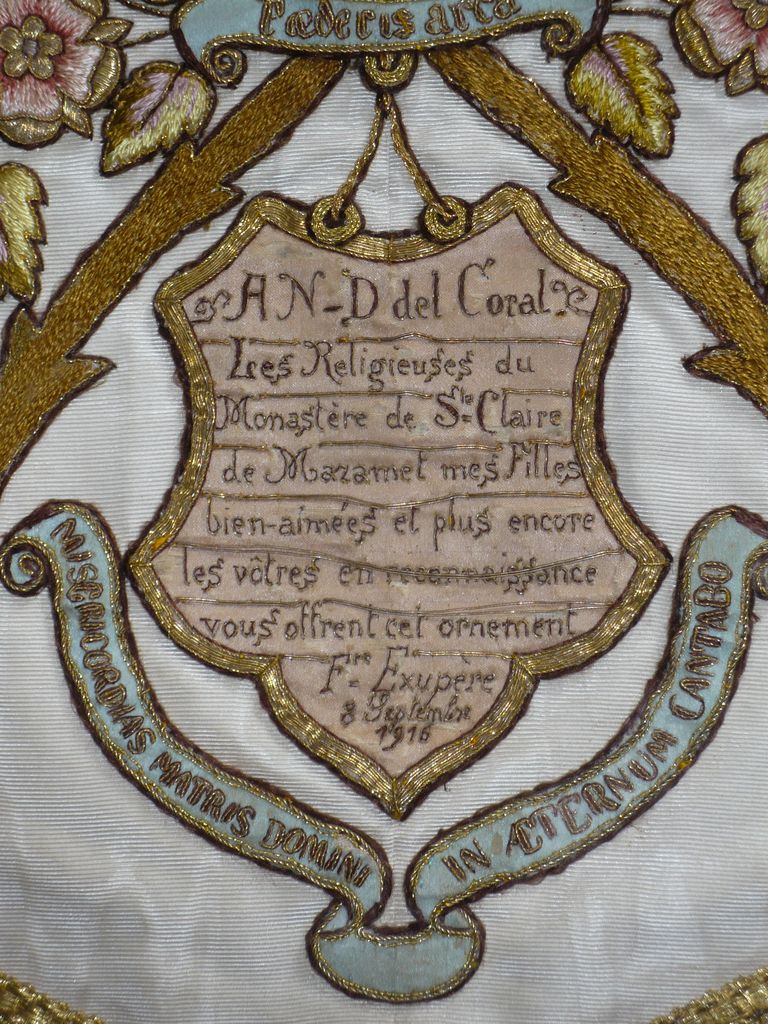 Fœderis arca
A N-D del Coral
Les Religieuses du
Monastère de Ste Claire
de Mazamet mes Filles
bien-aimées et plus encore
les vôtres en reconnaissance
vous offrent cet ornement
F.re Exupère
8 Septembre
1916
MISERICORDIAS MATRIS DOMINI
IN ÆTERNUM CANTABO